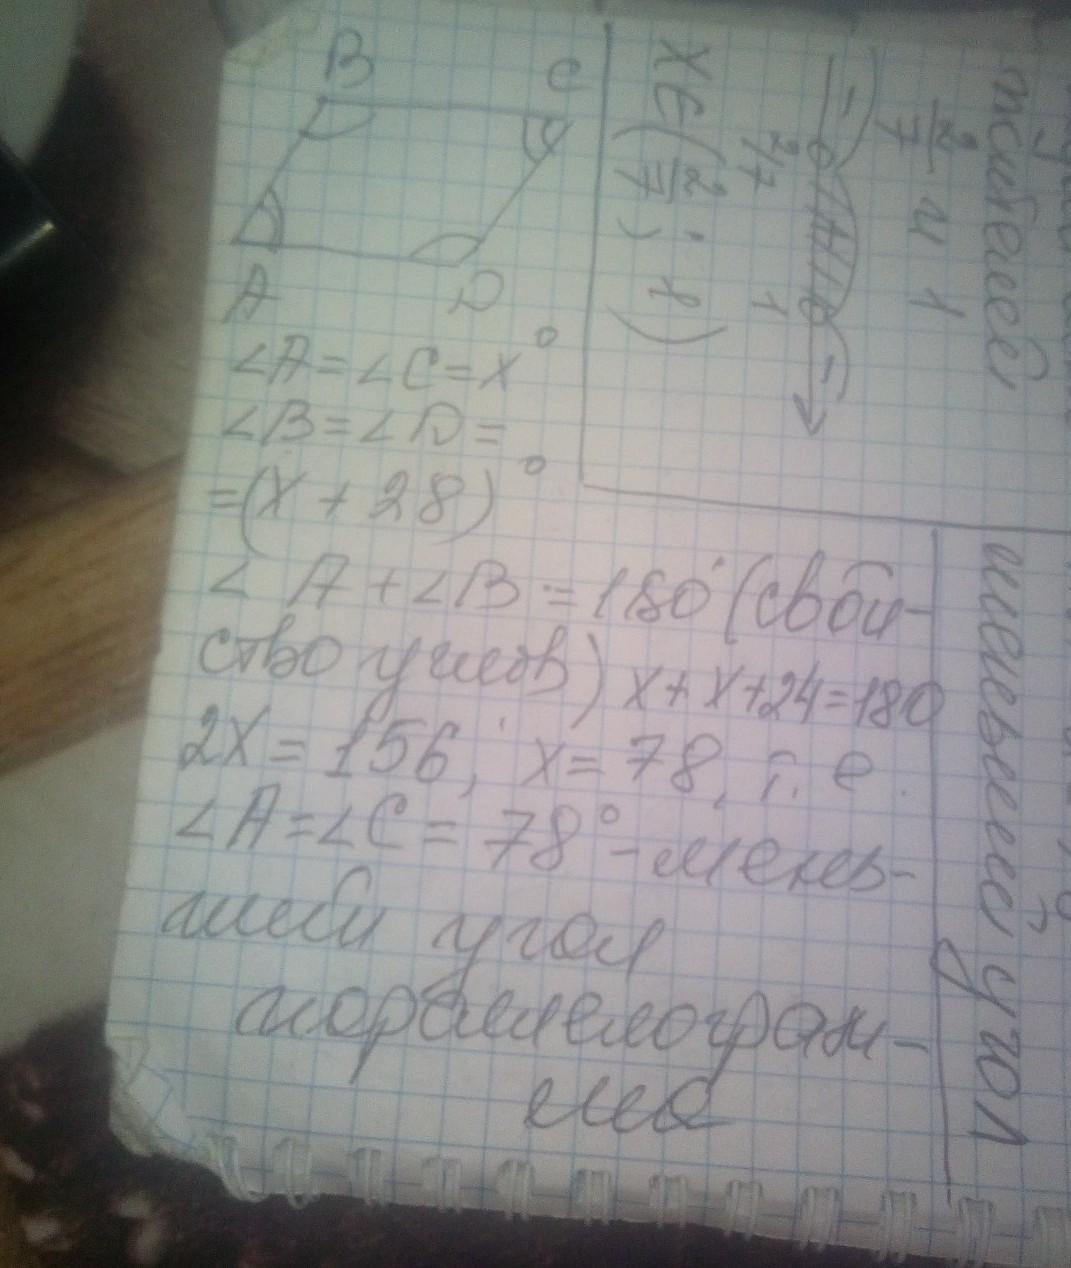 B C
A D
∠A=∠C=x°
∠B=∠D=
=(x+28)°
∠A+∠B=180°(свой-
ство углов) x+x+24=180
2x=156; x=78, т.е.
∠A=∠C=78°-мень-
ший угол
параллелограм-
ма
2/7 и 1
2/7 1
x∈(2/7; 1)
угол